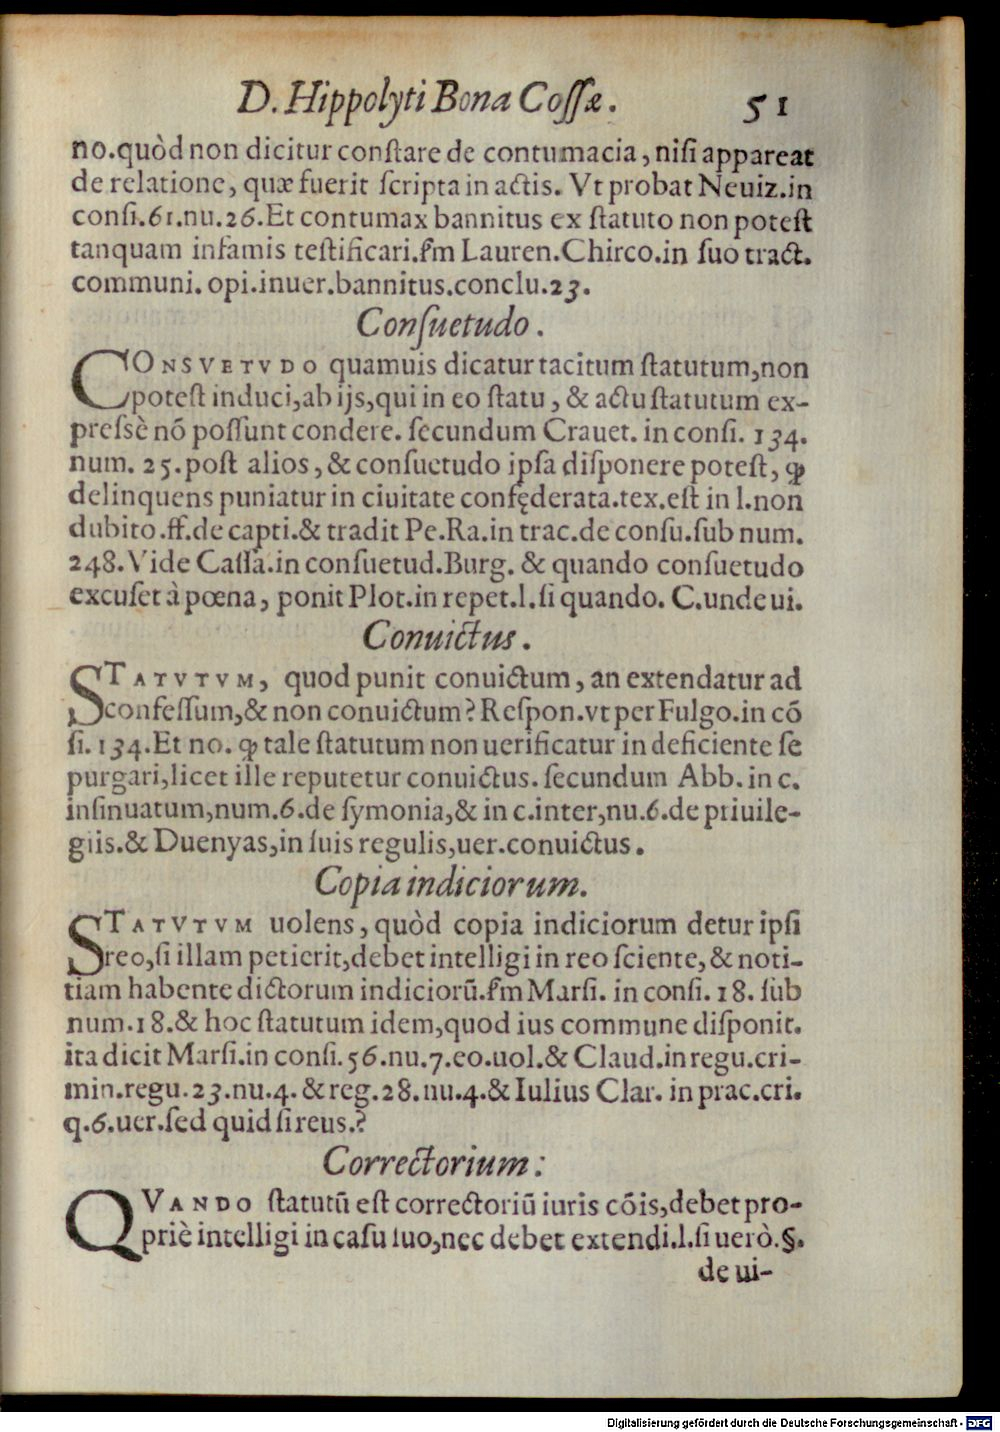 D. Hippolyti Bona Coſſæ. 51
no.quòd non dicitur conſtare de contumacia, niſi appareat
de relatione, quæ fuerit ſcripta in actis. Vt probat Neuiz.in
conſi.61.nu.26.Et contumax bannitus ex ſtatuto non poteſt
tanquam infamis teſtificari.ſm Lauren.Chirco.in ſuo tract.
communi. opi.inuer.bannitus.conclu.23.
Conſuetudo.
CONSVETVDO quamuis dicatur tacitum ſtatutum,non
poteſt induci,ab ijs,qui in eo ſtatu, & actu ſtatutum ex-
preſsè nõ poſſunt condere. ſecundum Crauet. in conſi. 134.
num. 25.poſt alios, & conſuetudo ipſa diſponere poteſt, ꝙ
delinquens puniatur in ciuitate confęderata.tex.eſt in l.non
dubito.ff.de capti.& tradit Pe.Ra.in trac.de conſu.ſub num.
248.Vide Caſſa.in conſuetud.Burg. & quando conſuetudo
excuſet à pœna, ponit Plot.in repet.l.ſi quando. C.unde ui.
Conuictus.
STATVTVM, quod punit conuictum, an extendatur ad
confeſſum,& non conuictum? Reſpon.vt per Fulgo.in cõ
ſi. 134.Et no. ꝙ tale ſtatutum non uerificatur in deficiente ſe
purgari,licet ille reputetur conuictus. ſecundum Abb. in c.
inſinuatum,num.6.de ſymonia,& in c.inter,nu.6.de priuile-
giis.& Duenyas,in ſuis regulis,uer.conuictus.
Copia indiciorum.
STATVTVM uolens, quòd copia indiciorum detur ipſi
reo,ſi illam petierit,debet intelligi in reo ſciente,& noti-
tiam habente dictorum indiciorũ.ſm Marſi. in conſi. 18. ſub
num.18.& hoc ſtatutum idem,quod ius commune diſponit.
ita dicit Marſi.in conſi.56.nu.7.eo.uol.& Claud.in regu.cri-
min.regu.23.nu.4. & reg.28.nu.4.& Iulius Clar. in prac.cri.
q.6.uer.ſed quid ſi reus.?
Correctorium:
QVANDO ſtatutũ eſt correctoriũ iuris cõis,debet pro-
priè intelligi in caſu ſuo,nec debet extendi.l.ſi uerò.§.
de ui-
Digitalisierung gefördert durch die Deutsche Forschungsgemeinschaft - DFG